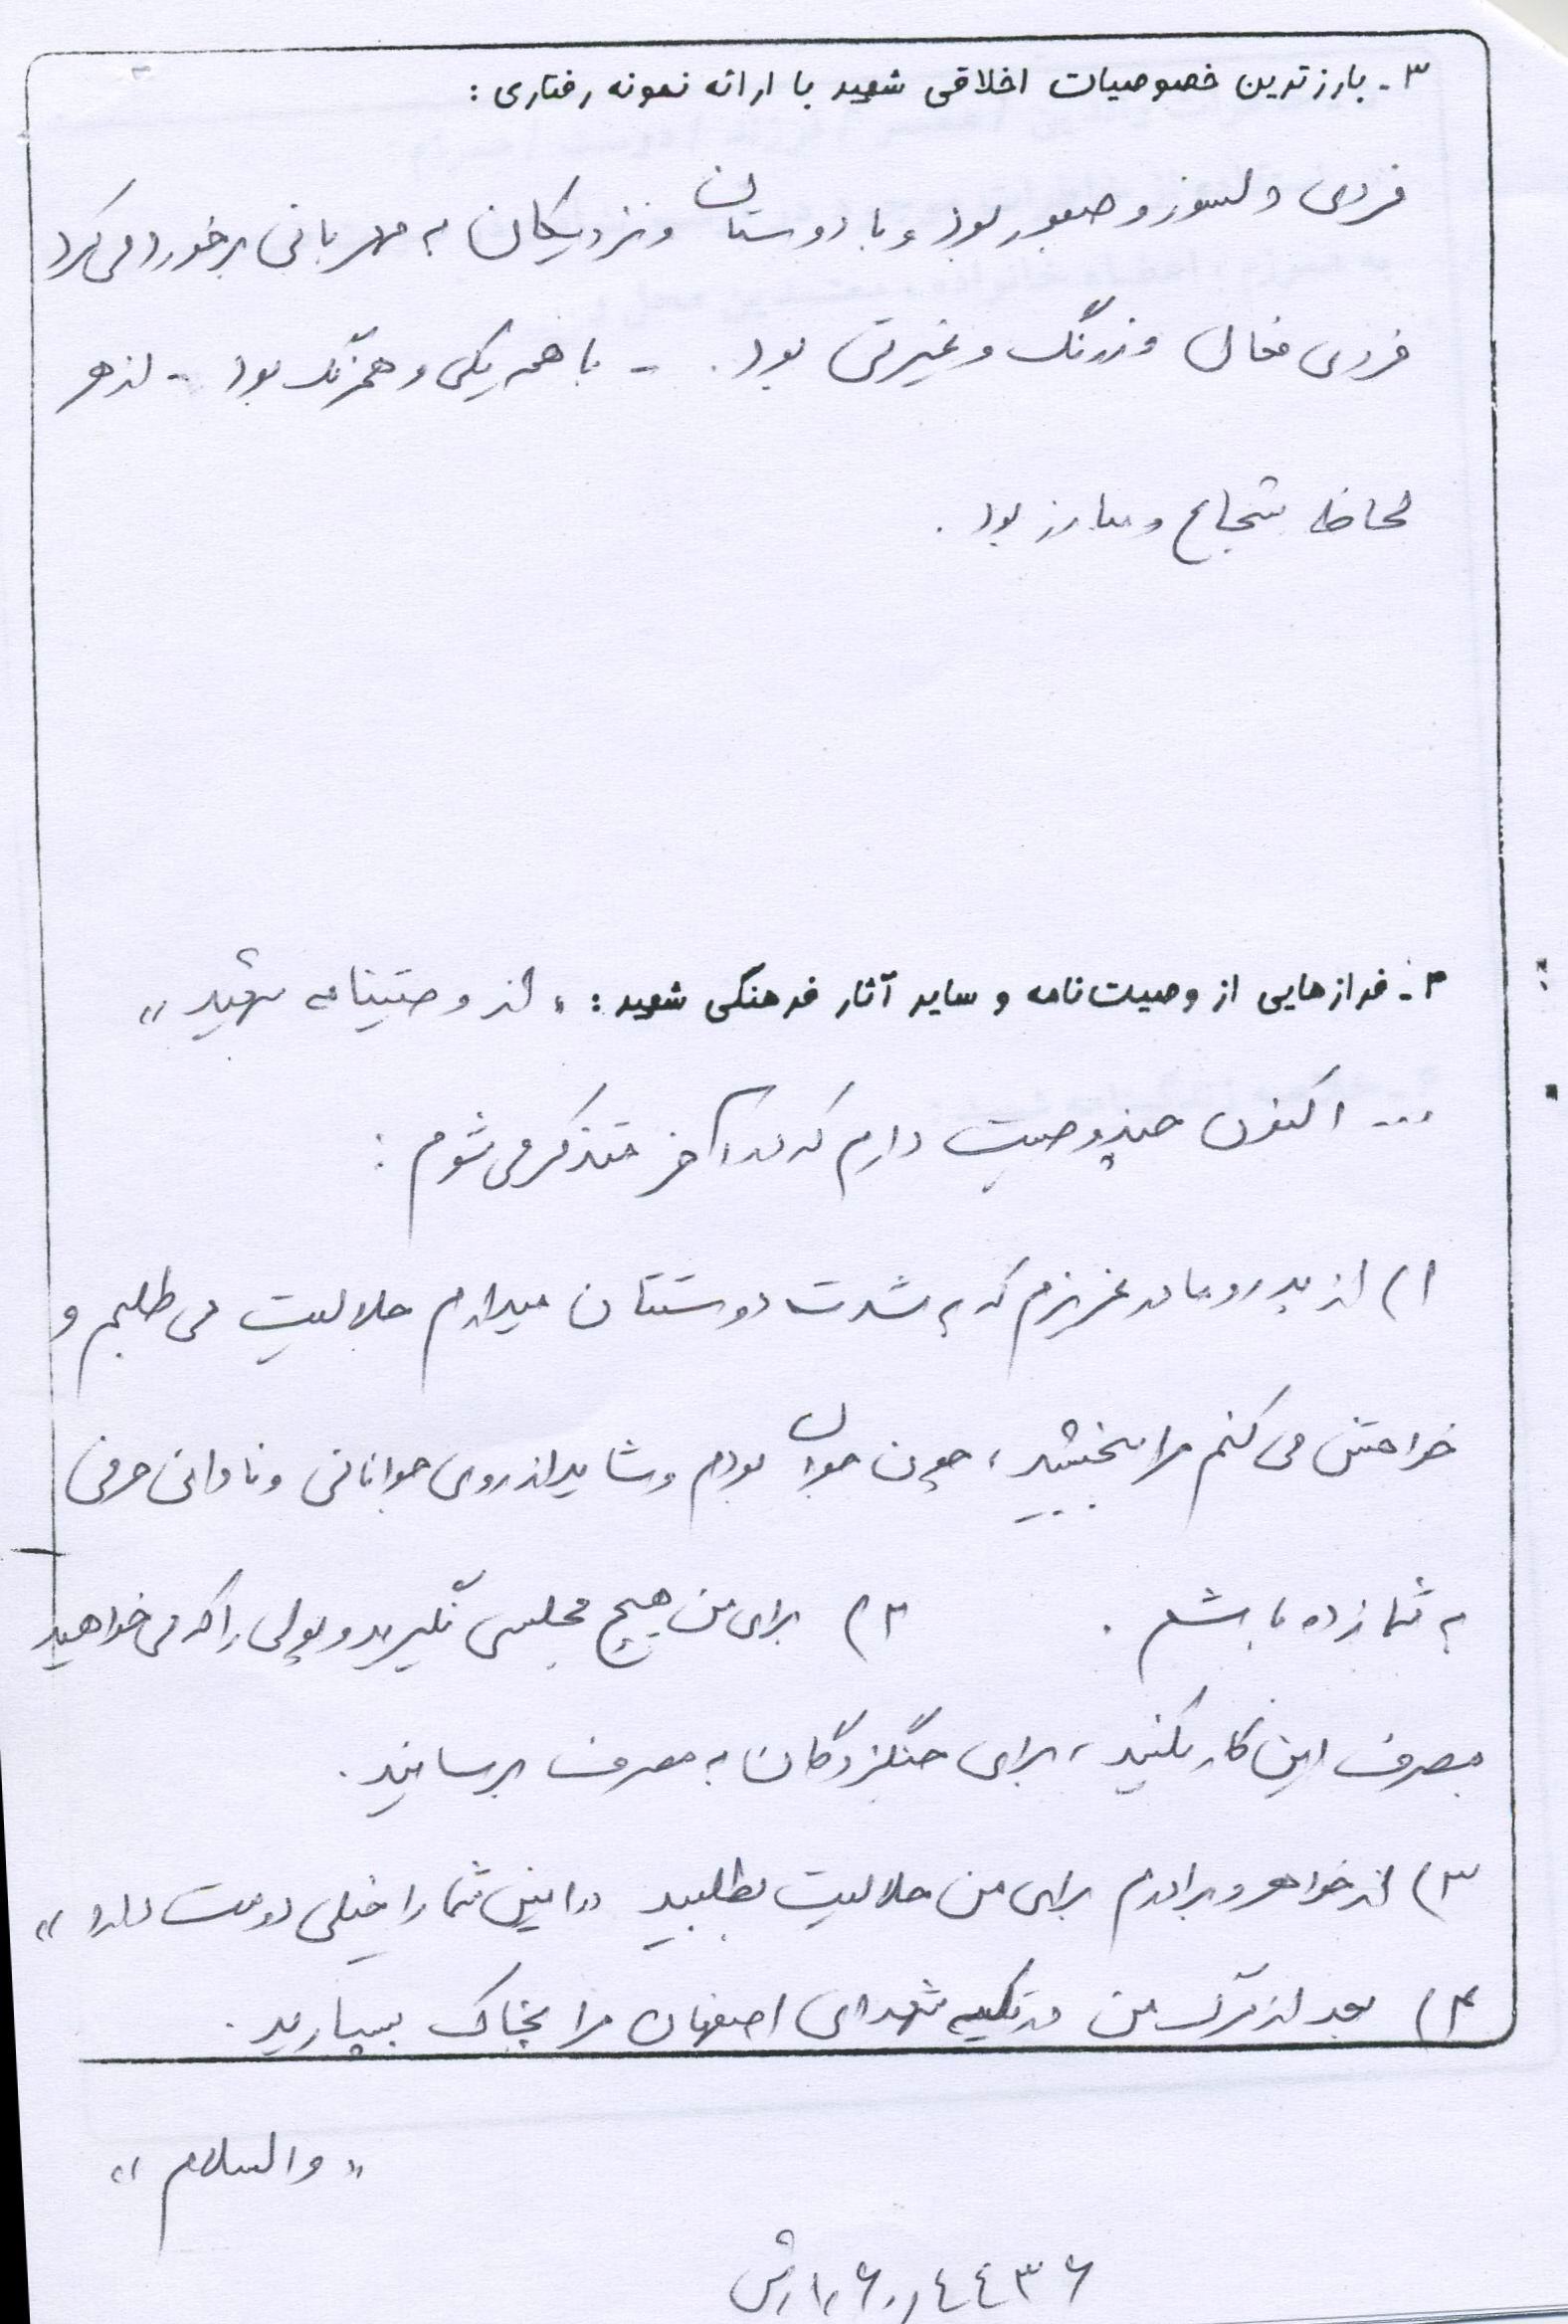 ۳- بارزترین خصوصیات اخلاقی شهید با ارائه نمونه رفتاری :
فردی دلسوز و صبور بود و با دوستان و نزدیکان به مهربانی برخورد می کرد
فردی فعال و زرنگ و غیرتی بود. - با همه یکی و همرنگ بود - از هر
لحاظ شجاع و مبارز بود .
۴- فرازهایی از وصیت‌نامه و سایر آثار فرهنگی شهید : « از وصیتنامه شهید »
... اکنون چند وصیت دارم که در آخر متذکر می شوم :
۱) از پدر و مادر عزیزم که به شدت دوستتان میدارم حلالیت می طلبم و
خواهش می کنم مرا ببخشید ، چون جوان بودم و شاید از روی جوانی و نادانی حرفی
به شما زده باشم . ۲) برای من هیچ مجلسی نگیرید و پولی را که می خواهید
مصرف این کار بکنید ، برای جنگزدگان به مصرف برسانید .
۳) از خواهر و برادرم برای من حلالیت بطلبید شما را خیلی دوست دارد »
۴) بعد از مرگ من در تکیه شهدای اصفهان مرا بخاک بسپارید .
« والسلام »
۴۴۳۶